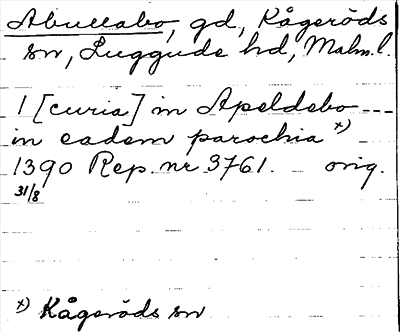 Abullabo, gd, Kågeröds
sn, Luggude hd, Malm. l.
1 [curia] in Apeldebo ---
in eadem parochia x) -
1390 Rep. nr 3761. orig.
31/8
x) Kågeröds sn